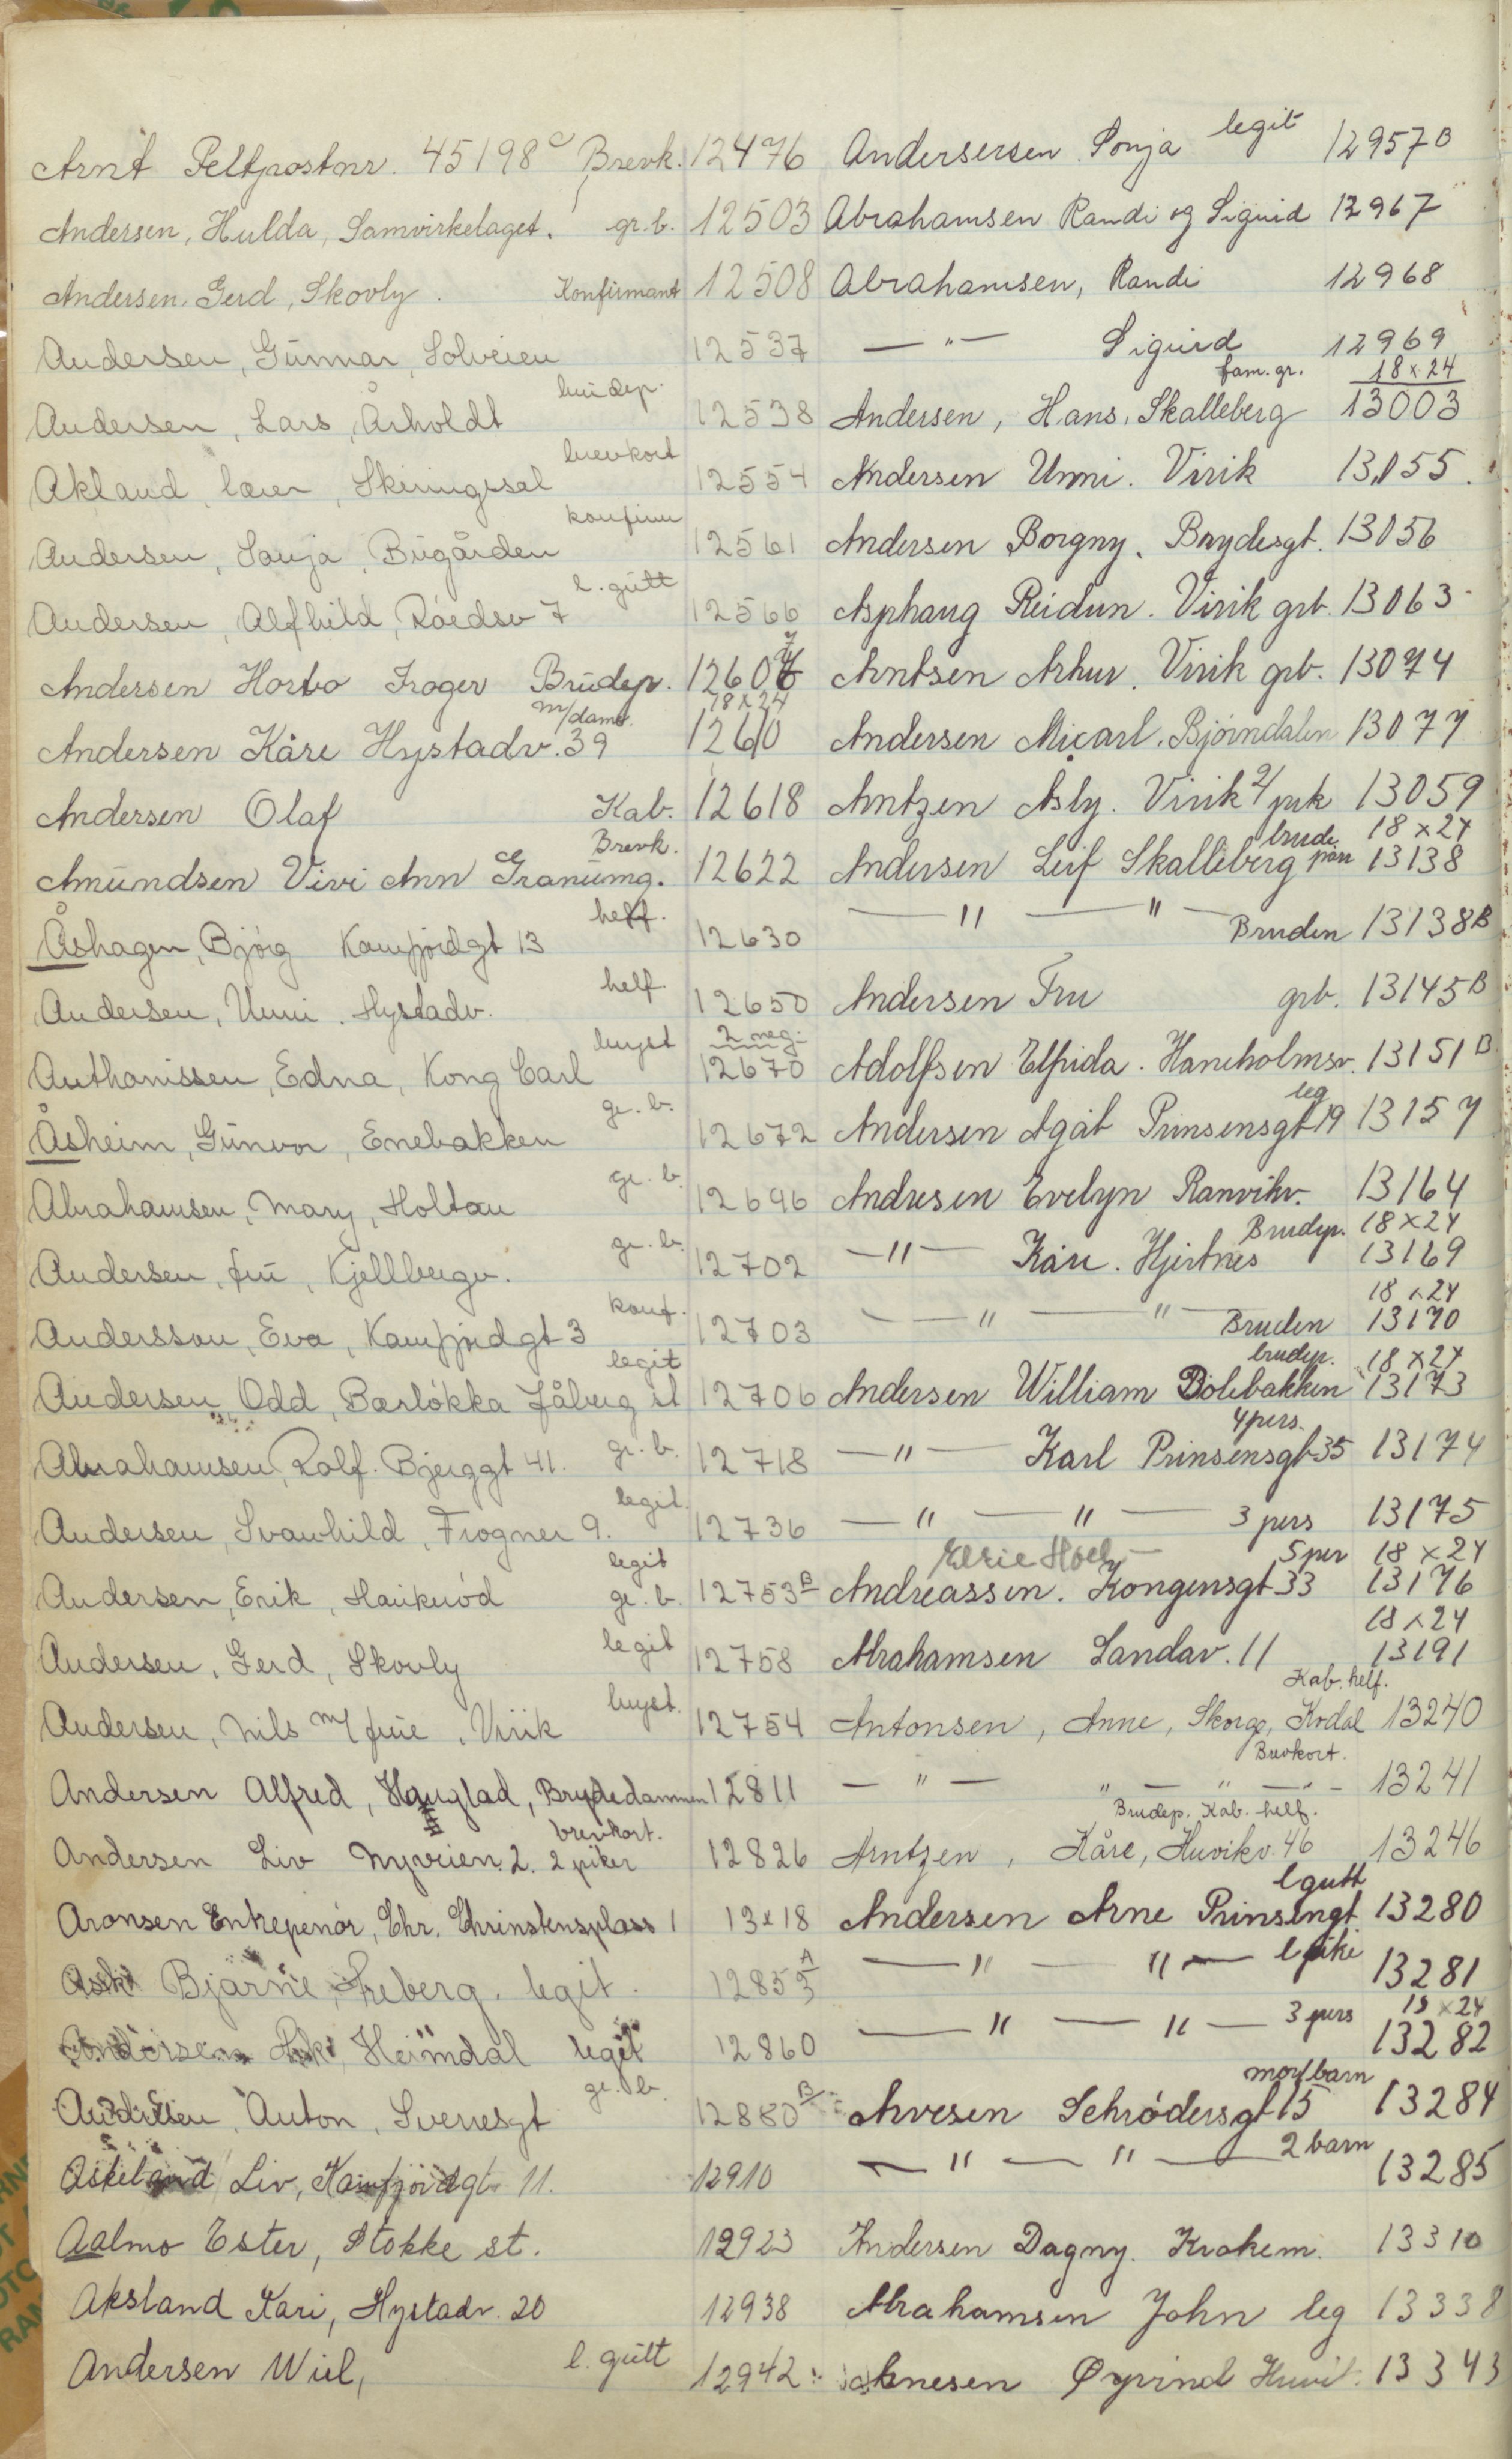 Arnt Feltpostnr. 45198 c Brevk. 12476
Andersen, Hulda, Samvirkelaget. gr.b. 12503
Andersen, Gerd, Skovly. Konfirmant 12508
Andersen, Gunnar, Solveien 12537
Andersen, Lars, Årholdt brudep. 12538
Akland, lærer, Skiringssal brevkort 12554
Andersen, Sonja, Bugården konfirm 12561
Andersen, Alfhild, Råedsv 7 l. gutt 12566
Andersen Horbo Froger Brudep. 12607
18x24
Andersen Kåre Hystadv. 39 m/dame. 12610
Andersen Olaf Kab. 12618
Amundsen Vivi Ann Granumg. Brevk. 12622
Åshagen, Bjórg Kamfjordgt 13 helf. 12630
Andersen, Unni. Hystadv. helf. 12650
2 neg.
Anthonissen, Edna, Kong Carl bryst 12670
Åsheim, Gunvor, Enebakken gr. b. 12672
Abrahamsen, Mary, Holtan gr. b. 12696
Andersen, fru, Kjellbergv. gr. b. 12702
Andersson, Eva, Kamfjordgt 3 konf. 12703
Andersen, Odd, Bærlókka Jåberg st legit 12706
Abrahamsen, Rolf. Bjerggt 41. gr. b. 12718
Andersen, Svanhild, Frogner 9. legit. 12736
Andersen, Erik, Haukeród legit gr. b. 12753 B
Andersen, Gerd, Skovly legit 12758
Andersen, Nils m/ frue, Virik bryst. 12754
Andersen Alfred, Hauglad, Brydedammen 12811
Andersen Liv Nyveien 2. 2 piker brevkort. 12826
Aronsen Enkepenór, Chr. Chrinstensplass 1 13x18
Ask Bjarne, Freberg. legit. 12853 A
Andersen Heimdal legit 12860
Andersen, Anton, Sverresgt gr. b. 12880 B
Askeland Liv, Kamfjordgt 11. 12910
Aalmo Ester, Stokke st. 12923
Aksland Kari, Hystadv. 20 12938
Andersen Wiel, l. gutt 12942
Andersersen Sonja legit 12957 B
Abrahamsen Randi og Sigurd 12967
Abrahamsen, Randi 12968
— " — Sigurd 12969
fam. gr. 18x24
Andersen, Hans, Skalleberg 13003
Andersen Unni. Virik 13055.
Andersen Borgny, Brydesgt. 13056
Asphaug Reidun. Virik grb. 13063
Arntsen Arhur. Virik grb. 13074
Andersen Micarl. Bjørndalen 13077
Arntzen Asby. Virik 2/ prk 13059
brude 18x24
Andersen Leif Skalleberg par 13138
— " — " — Bruden 13138 B
Andersen Fru grb. 13145 B
Adolfsen Elfrida. Haneholmsv. 13151 B
leg
Andersen Agat Prinsensgt 19 13157
Andresen Evelyn Ranvikv. 13164
Brudep. 18x24
— " — Kåre. Hjertnes 13169
18x24
— " — " — Bruden 13170
brudep. 18x24
Andersen William Dølebakken 13173
4 pers.
— " — Karl Prinsensgt 35 13174
— " — " — 3 pers 13175
Elsie Hoel — 5 per 18x24
Andreassen. Kongensgt 33 13176
18x24
Abrahamsen Landav. 11 13191
Kab. helf.
Antonsen, Anne, Skorge, Kodal 13240
Brevkort.
— " — " — " — 13241
Brudep. Kab. helf.
Arntzen, Kåre, Huvikv. 46 13246
l gutt
Andersen Arne Prinsengt 13280
— " — " — l pike 13281
— " — " — 3 pers 18x24
13282
mor/barn
Arvesen Schródersgt 15 13284
— " — " — 2 barn 13285
Andersen Dagny. Krokem. 13310
Abrahamsen John leg 13338
Arnesen Øyvind Huvik. 13343